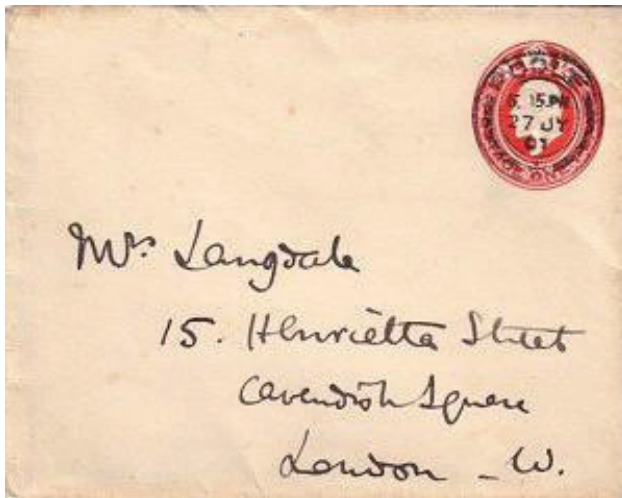 POOLE
6. 15 PM
27 JY
07
Mrs. Langdale
15. Henrietta Street
Cavendish Square
London - W.